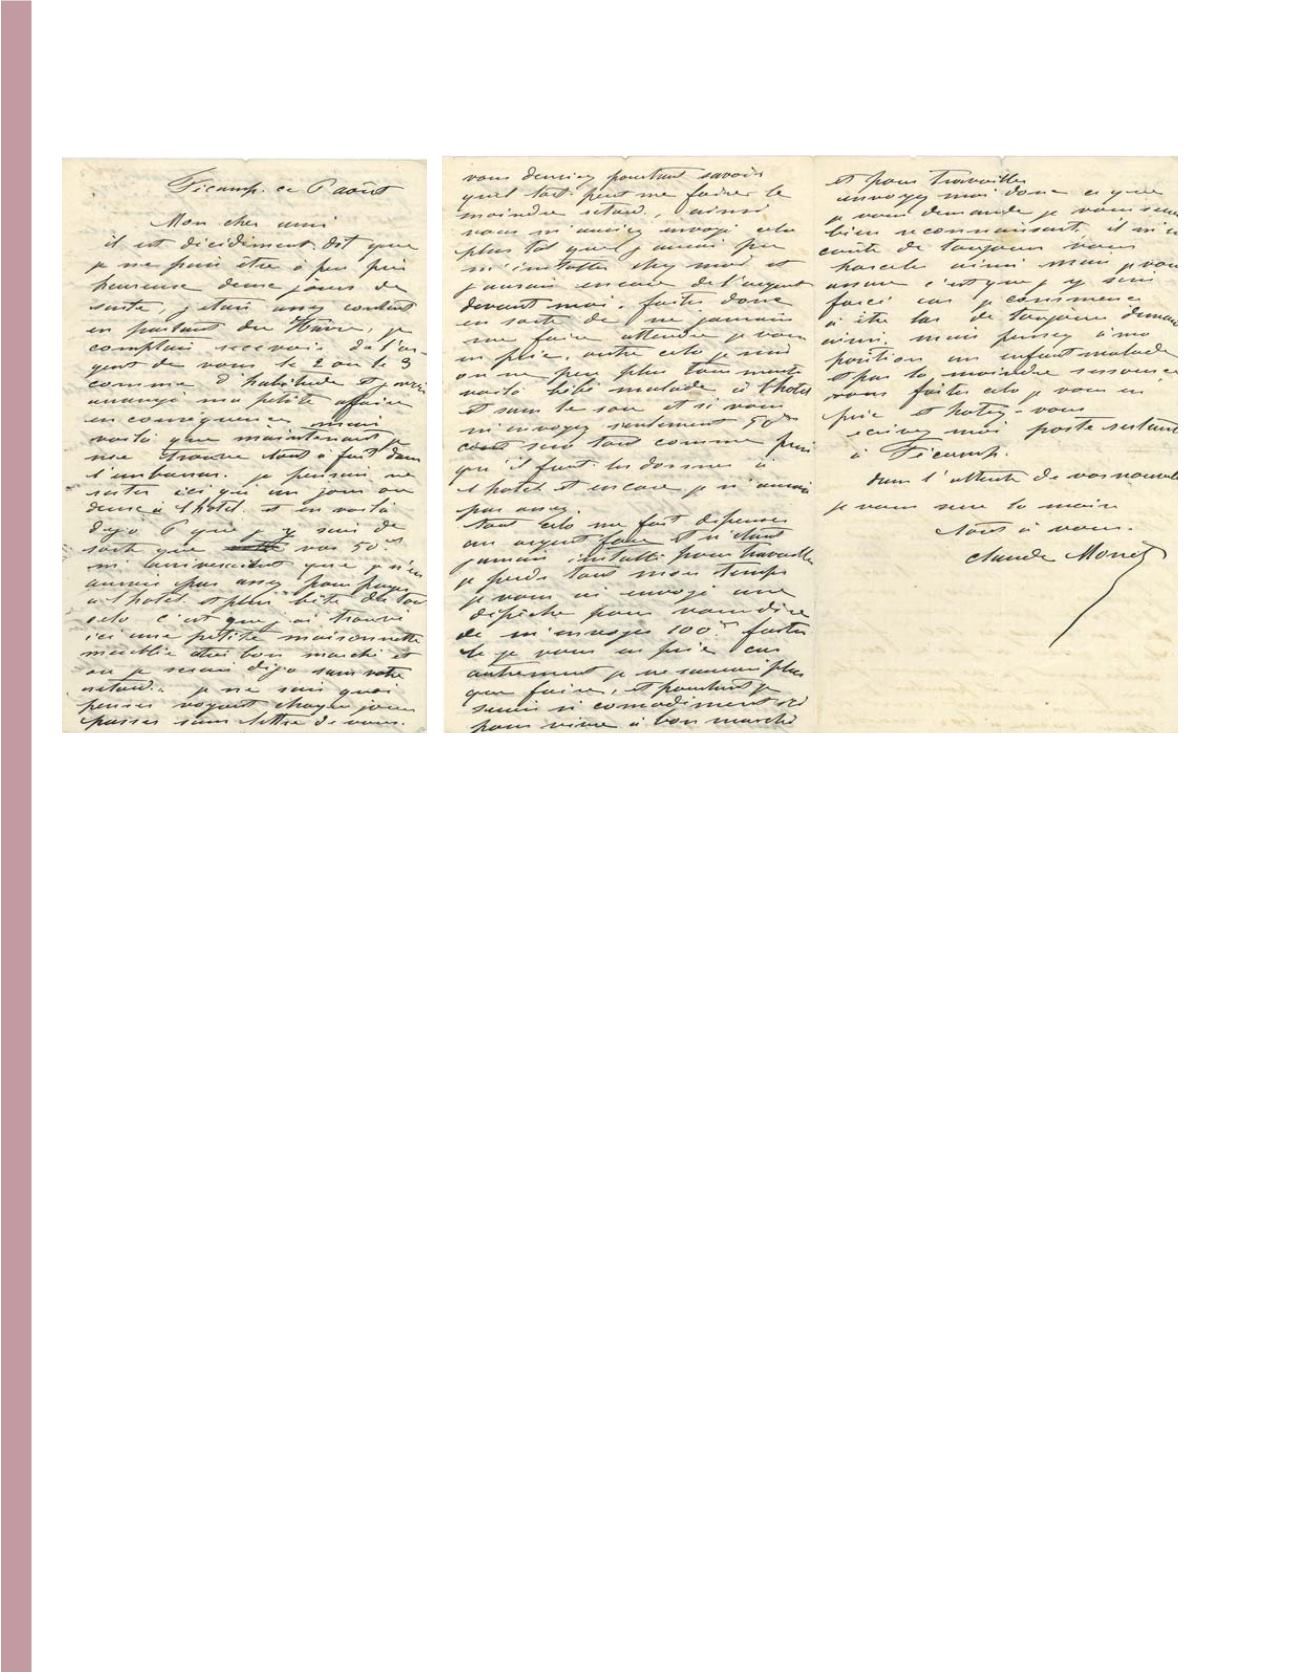 Fécamp. ce 6 août
Mon cher ami
il est décidément dit que
je ne puis être à peu près
heureuse deux jours de
suite, j'étais assez content
en partant du Havre, je
comptais recevoir de l'ar-
gent de vous le 2 ou le 3
comme d'habitude et j'avais
arrangé ma petite affaire
en conséquence mais
voilà que maintenant je
me trouve tout à fait dans
l'embarras. je pensais ne
rester ici qu'un jour ou
deux à l'hotel. et en voilà
déjà 6 que j'y suis de
sorte que vos 50 frs
m'arriveraient que je n'en
aurais pas assez pour payer
à l'hotel. et plus bête de tout
cela c'est que j'ai trouvé
ici une petite maisonnette
meublée très bon marché et
où je serais déjà sans votre
retard. je ne sais quoi
penser voyant chaque jour
passer sans lettre de vous.
vous devriez pourtant savoir
quel tort peut me faire le
moindre retard, ainsi
vous m'auriez envoyé cela
plus tôt que j'aurais pu
m'installer chez moi et
j'aurais encore de l'argent
devant moi. faites donc
en sorte de ne jamais
me faire attendre je vous
en prie. outre cela je suis
on ne peu plus tourmenté
voilà bébé malade à l'hotel
et sans le sou et si vous
m'envoyez seulement 50 frs
sera tout comme puis
qu'il faut les donner à
l'hotel et encore je n'aurai
pas assez.
tout cela me fait dépenser
un argent fou et n'étant
jamais installé pour travailler
je perds tout mon temps
je vous ai envoyé une
dépêche pour vous dire
de m'envoyer 100 frs faites
le je vous en prie car
autrement je ne saurais plus
que faire, et pourtant je
serais si comodiment ici
pour vivre à bon marché
et pour travailler
envoyez moi donc ce que
je vous demande je vous serai
bien reconnaissant. il m'en
coûte de toujours vous
harceler ainsi mais je vous
assure c'est que j'y suis
forcé car je commence
à être las de toujours demander
ainsi. mais pensez à ma
position un enfant malade
et pas la moindre ressource
vous faites cela je vous en
prie et hatez-vous
écrivez moi poste restante
à Fécamp.
dans l'attente de vos nouvelles
je vous serre la main
tout à vous.
Claude Monet